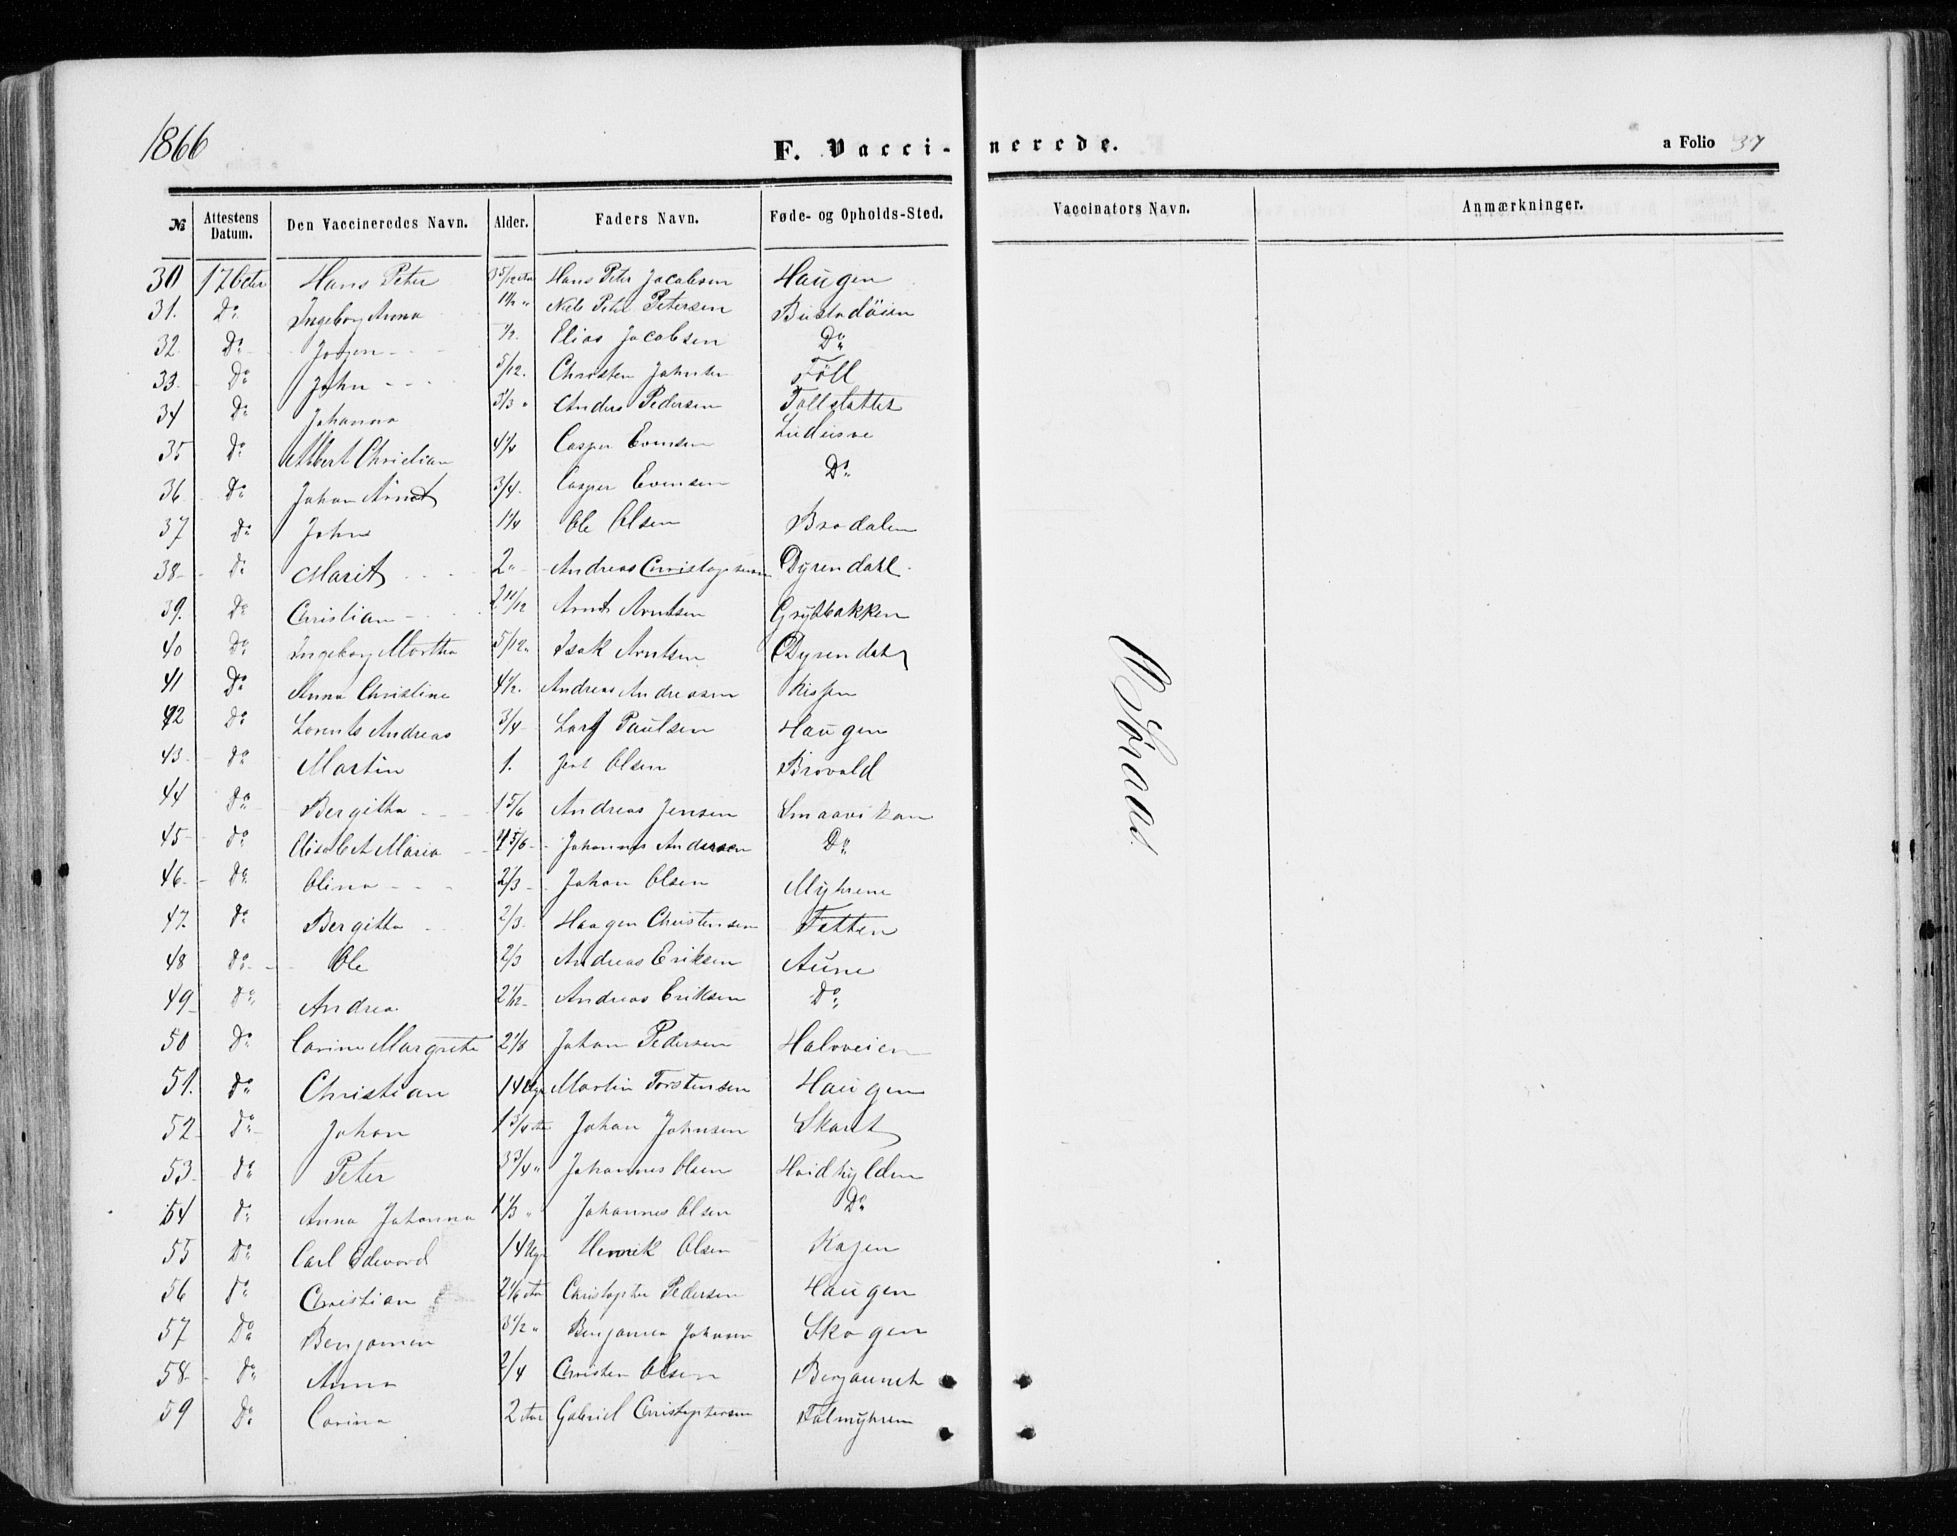 1866
F. Vacci-nerede.
a Folio 37
№ Attestens Datum. Den Vaccineredes Navn. Alder. Faders Navn. Føde- og Opholds-Sted. Vaccinators Navn. Anmærkninger.
30 Hans Peter Hans Peter Jacobsen Haugen
31. Do Ingeborg Anna Petersen
32. Do 1/2. Elias Jacobsen Do
33. Do John 5/12. Christen Føll
34 Do Johanna Anders Pedersen
35 Do Albert Christian Casper Evensen
36 Do Johan Arndt 3/4. Casper Evensen Do
37 Do John 1 1/4 Ole Olsen Brodalen
38 Do Marit 2 Andreas Dyrendahl
39. Do Christian 2 11/12 Arnt Arntsen Grytbakken
40 Do Ingeborg Martha 5/12 Isak Arntsen Dyrendahl
41 Do Anna Christine 4 1/2. Andreas Andreasen
42 Do Lorents Andreas 3/4 Lars Paulsen Haugen
43 Do Martin 1. Olsen Brovold
44 Do Bergitha 1 5/6 Andreas Jensen Smaavikan
45 Do Elisabet Maria 4 5/6 Johannes Andersen Do
46 Do Olina 2/3 Johan Olsen Myhrene
47. Do Bergitta 2/3. Haagen Christensen
48 Do Ole 2/3 Andreas Eriksen Aune
49 Do Andrea 2 1/2 Andreas Eriksen Do
50 Do Margrete 2 1/8 Johan Pedersen Halvveien
51. Do Christian 14 Martin Torstensen Haugen
52 Do Johan 1 3/4 Johan Johnsen
53. Do Peter 3 3/4 Johannes Olsen Hvidhylden
54 Do Anna Johanna 1 1/3 Johannes Olsen Do
55 Do Carl Edevard 14 Henrik Olsen
56 Do Christian 2 1/6 Christopher Pedersen Haugen
57 Do Benjamin 3 1/2 Skogen
58 Do Anna 2/4 Christen Olsen
59 Do Corina 2 Gabriel Christophersen